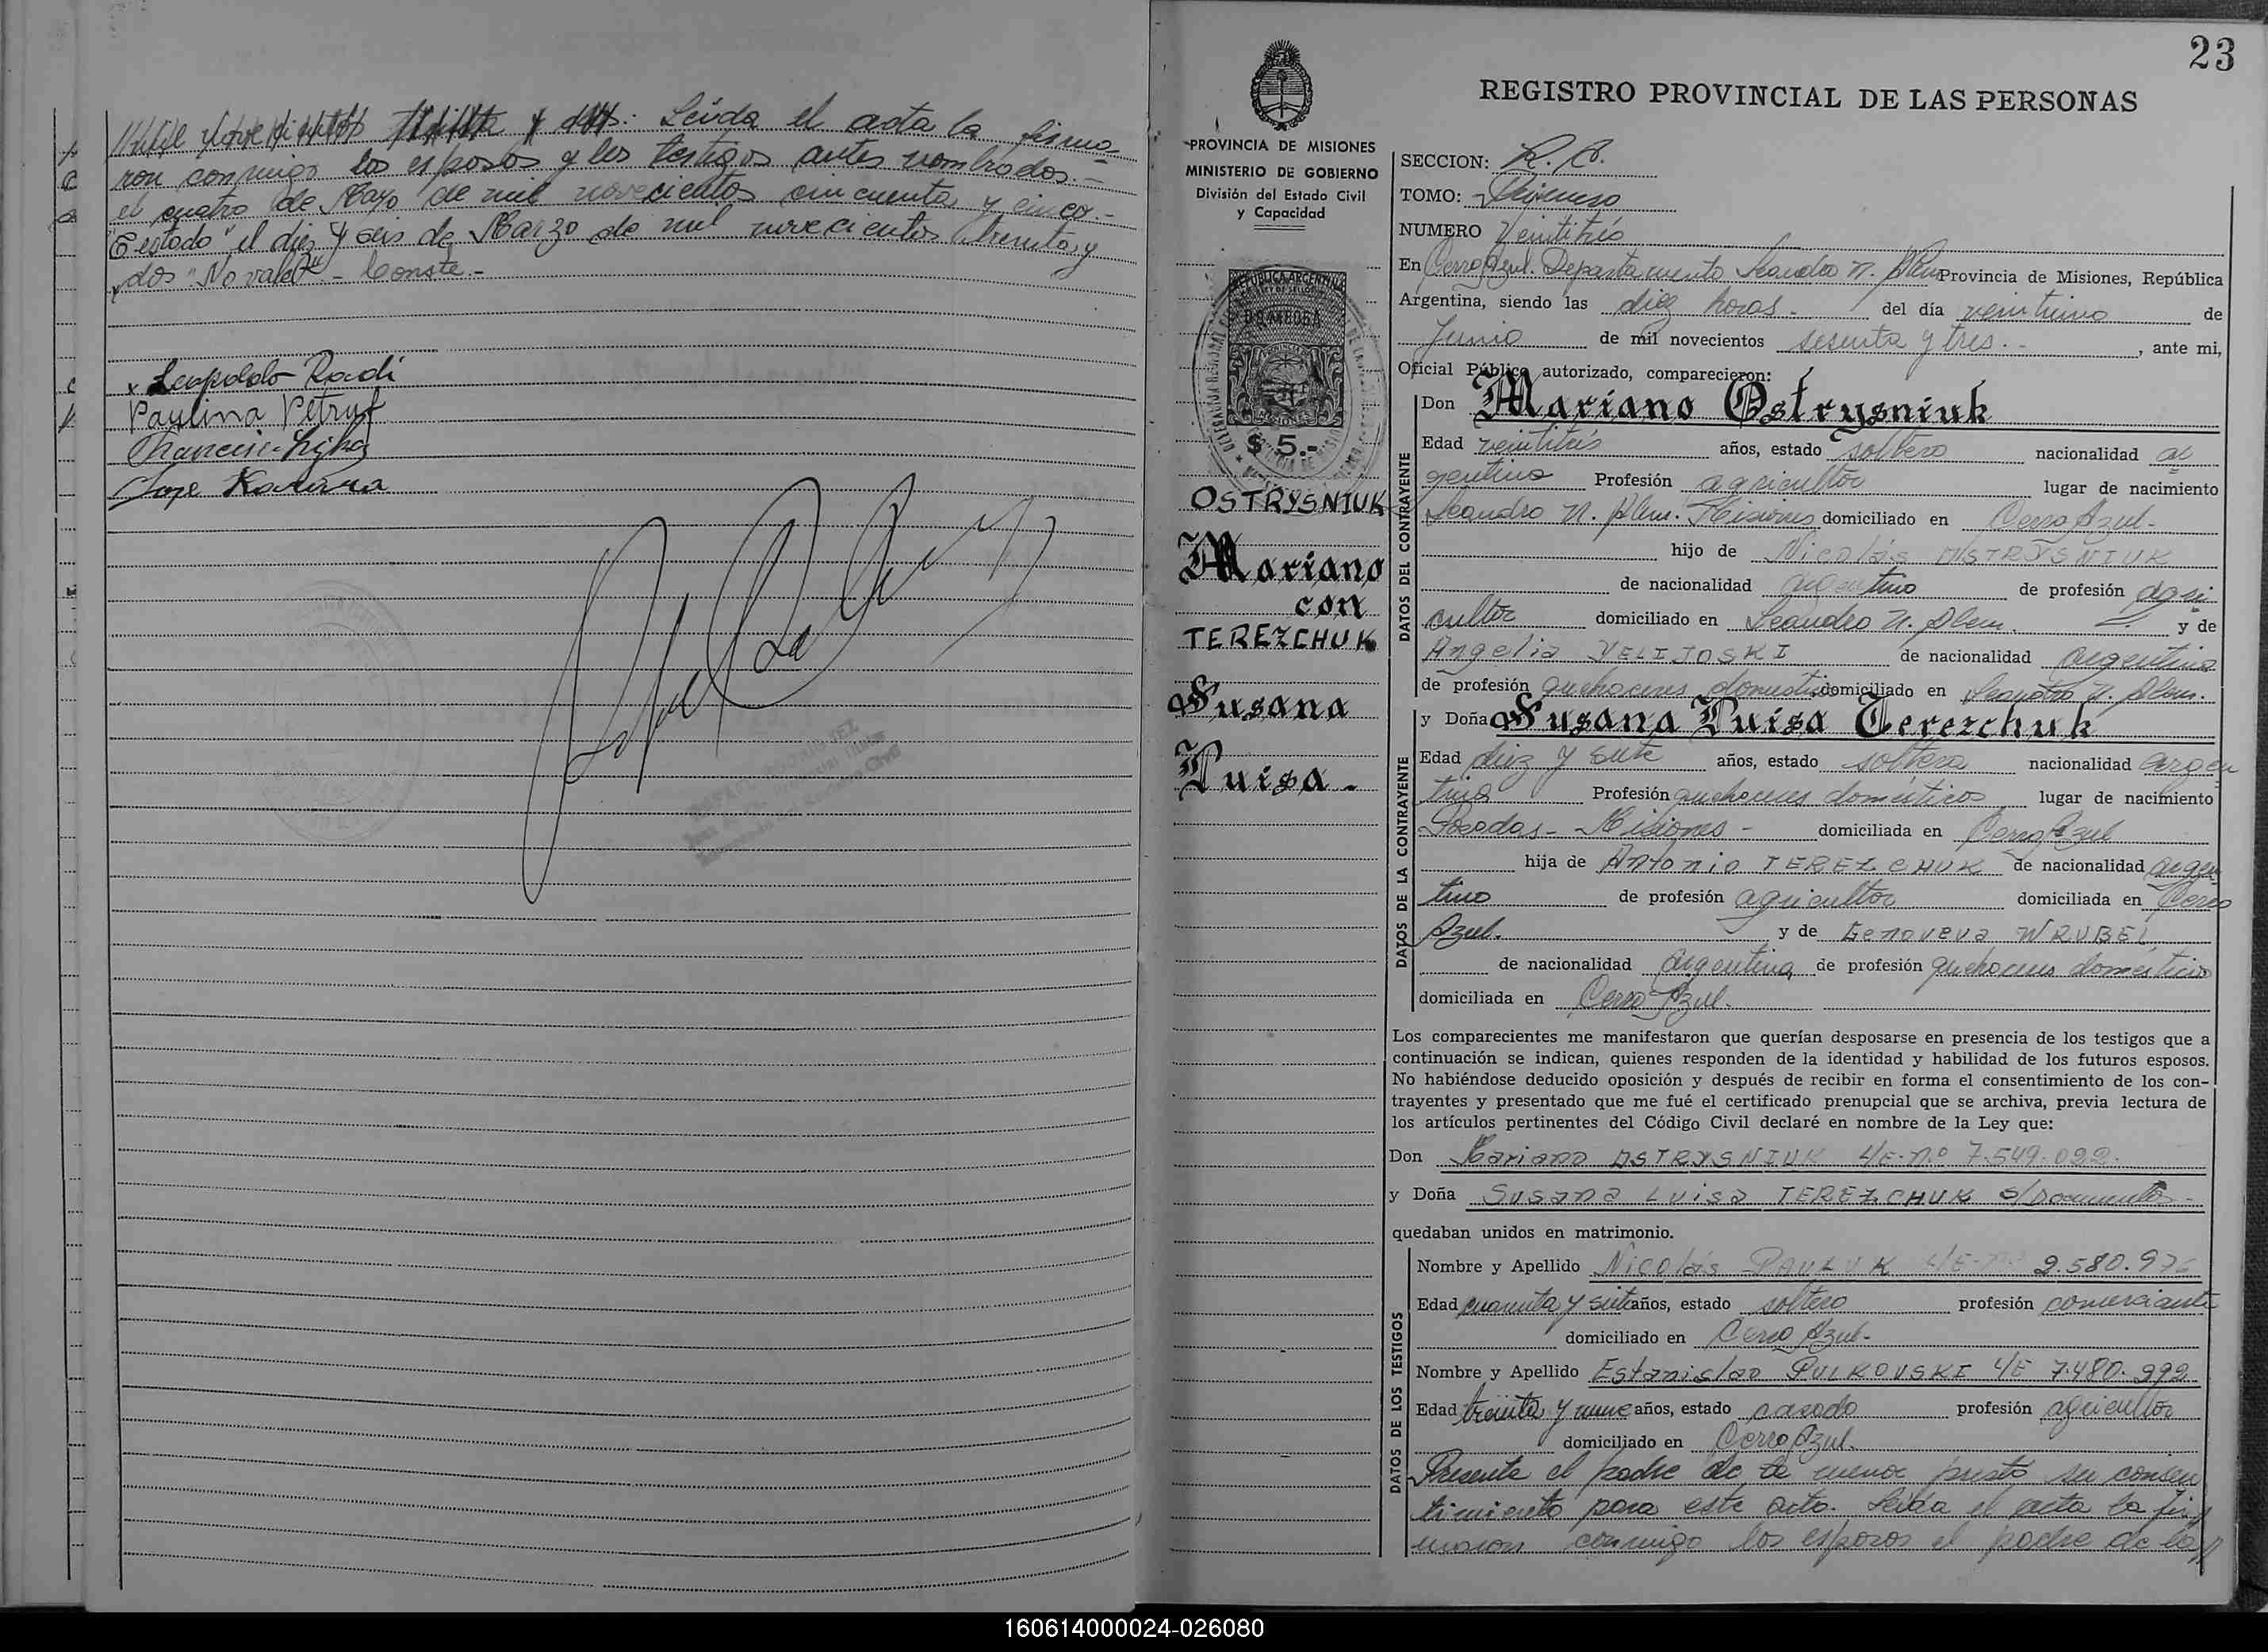 y dos: Leída el acta la firma-
ron conmigo los esposos y los testigos antes nombrados.-
el cuatro de Mayo de mil novecientos cincuenta y cinco.-
"E estado" el diez y seis de Marzo de mil novecientos treinta y
dos "No vale" - Conste.-
x Leopoldo Radi
Paulina Petruf
Jose
23
REGISTRO PROVINCIAL DE LAS PERSONAS
PROVINCIA DE MISIONES
MINISTERIO DE GOBIERNO
División del Estado Civil
y Capacidad
REPUBLICA ARGENTINA
$ 5.-
OSTRYSNIUK
Mariano
con
TEREZCHUK
Susana
Luisa.-
SECCION: R. C.
TOMO: Primero
NUMERO Veintitrés
En Cerro Azul. Departamento Leandro N. Alem Provincia de Misiones, República
Argentina, siendo las diez horas.- del día veintiuno de
Junio de mil novecientos sesenta y tres.- , ante mi,
Oficial Público autorizado, comparecieron:
DATOS DEL CONTRAYENTE
Don Mariano Ostrysniuk
Edad veintitrés años, estado soltero nacionalidad ar
gentino Profesión agricultor lugar de nacimiento
Leandro N. Alem. Misiones domiciliado en Cerro Azul-
hijo de Nicolás OSTRYSNIUK
de nacionalidad argentino de profesión agri
cultor domiciliado en Leandro N. Alem. y de
Angelia VELIJOSKI de nacionalidad argentina
de profesión quehaceres domésticos domiciliado en Leandro N. Alem.
DATOS DE LA CONTRAYENTE
y Doña Susana Luisa Terezchuk
Edad diez y siete años, estado soltera nacionalidad argen
tina Profesión quehaceres domésticos lugar de nacimiento
Posadas - Misiones - domiciliada en Cerro Azul
hija de Antonio TEREZCHUK de nacionalidad argen
tino de profesión agricultor domiciliada en Cerro
Azul. y de Genoveva WRUBEL
de nacionalidad argentina de profesión quehaceres domésticos
domiciliada en Cerro Azul.
Los comparecientes me manifestaron que querían desposarse en presencia de los testigos que a
continuación se indican, quienes responden de la identidad y habilidad de los futuros esposos.
No habiéndose deducido oposición y después de recibir en forma el consentimiento de los con-
trayentes y presentado que me fué el certificado prenupcial que se archiva, previa lectura de
los artículos pertinentes del Código Civil declaré en nombre de la Ley que:
Don Mariano OSTRYSNIUK L/E. n.º 7.549.022.
y Doña Susana Luisa TEREZCHUK s/Documentos -
quedaban unidos en matrimonio.
DATOS DE LOS TESTIGOS
Nombre y Apellido Nicolás PAULUK L/E- 2.580.976
Edad cuarenta y siete años, estado soltero profesión comerciante
domiciliado en Cerro Azul-
Nombre y Apellido Estanislao PULKOVSKI L/E 7.480.992
Edad treinta y nueve años, estado casado profesión agricultor
domiciliado en Cerro Azul.
Presente el padre de la menor prestó su consen
timiento para este acto. Leída el acta la fir
maron conmigo los esposos el padre de la
160614000024-026080